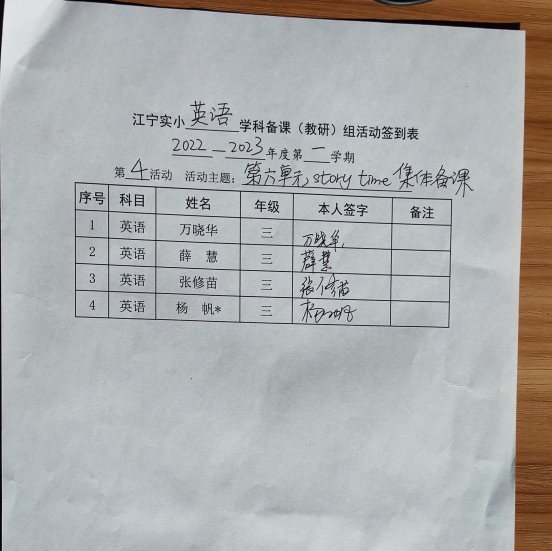 江宁实小英语学科备课（教研）组活动签到表
2022—2023年度第一学期
第4活动 活动主题：第六单元story time 集体备课
序号 科目 姓名 年级 本人签字 备注
1 英语 万晓华 三 万晓华
2 英语 薛 慧 三 薛慧
3 英语 张修苗 三 张修苗
4 英语 杨 帆* 三